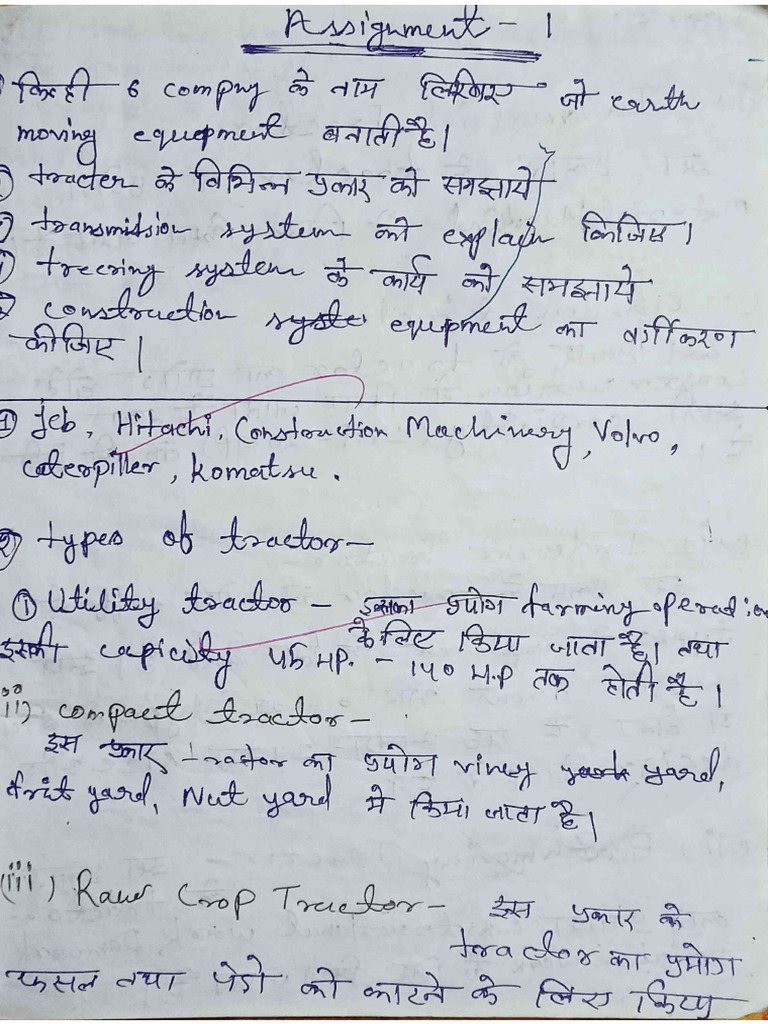 Assignment - 1
किन्ही 6 compny के नाम लिखिए जो earth
moving equepment बनाती है।
tracter के विभिन्न प्रकार को समझाये
transmission system को explain किजिए।
treering system के कार्य को समझाये
construction syste equepment का वर्गीकरण
कीजिए।
① jcb, Hitachi, Construction Machinery, Volvo,
caterpiller, komatsu.
② types of tractor—
① Utility tractor - इसका प्रयोग farming operation
के लिए किया जाता है। तथा
इसकी capicity 45 HP. - 140 H.P तक होती है।
ii) compact tractor—
इस प्रकार tractor का प्रयोग viney yard,
fruit yard, Nut yard मे किया जाता है।
(iii) Raw Crop Tractor- इस प्रकार के
tractor का प्रयोग
फसल तथा पेडो को काटने के लिए किया